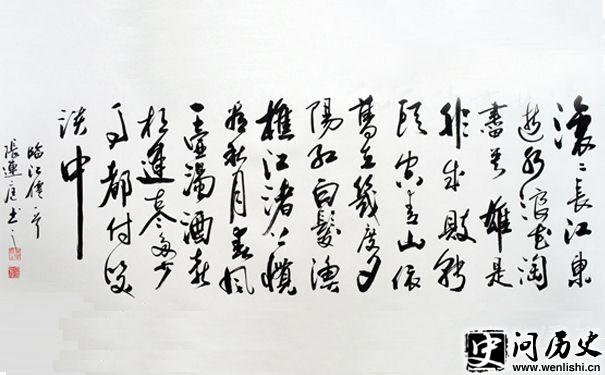 滚〻長江東
逝水浪花淘
盡英雄是
非成敗轉
頭空青山依
舊在幾度夕
陽紅白髮漁
樵江渚上慣
看秋月春風
一壺濁酒喜
相逢古今多少
事都付笑
談中
臨江僊
張蓮庭书
史 问历史
www.wenlishi.cn